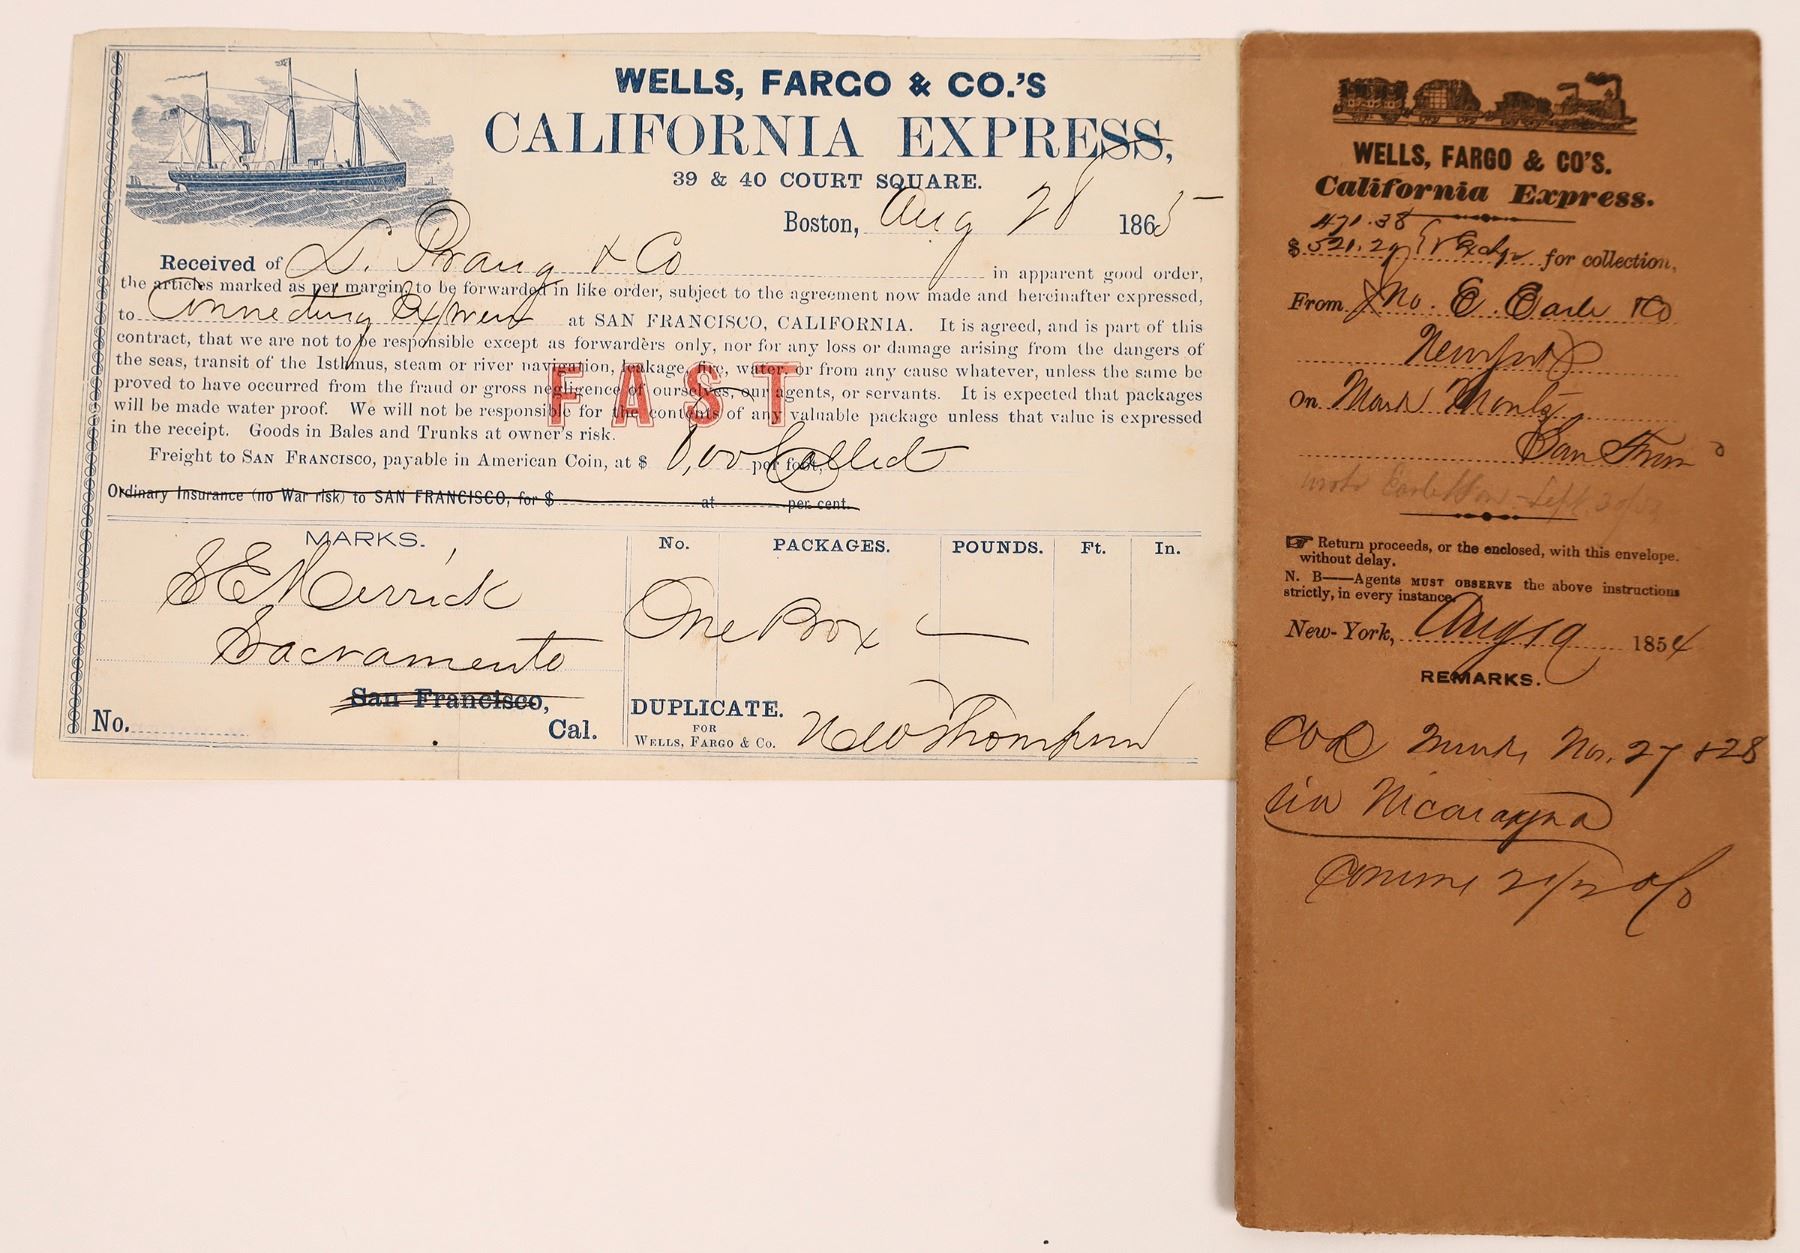 WELLS, FARGO & CO.'S
CALIFORNIA EXPRESS,
39 & 40 COURT SQUARE.
Boston, Aug 28 1865
Received of L. Prang & Co in apparent good order,
the articles marked as per margin, to be forwarded in like order, subject to the agreement now made and hereinafter expressed,
to Connecting Express at SAN FRANCISCO, CALIFORNIA. It is agreed, and is part of this
contract, that we are not to be responsible except as forwarders only, nor for any loss or damage arising from the dangers of
the seas, transit of the Isthmus, steam or river navigation, leakage, fire, water, or from any cause whatever, unless the same be
proved to have occurred from the fraud or gross negligence of ourselves, our agents, or servants. It is expected that packages
will be made water proof. We will not be responsible for the contents of any valuable package unless that value is expressed
in the receipt. Goods in Bales and Trunks at owner's risk.
FAST
Freight to SAN FRANCISCO, payable in American Coin, at $ per foot, Collect
Ordinary Insurance (no War risk) to SAN FRANCISCO, for $ at per cent.
MARKS. No. PACKAGES. POUNDS. Ft. In.
S E Merrick One Box
Sacramento
San Francisco,
No. Cal.
DUPLICATE.
FOR
WELLS, FARGO & CO. Thompson
WELLS, FARGO & CO'S.
California Express.
471.38
$ 521.29 for collection,
From Jno. E. Earle & Co
New York
On Mark
San Fran
Sept. 30
Return proceeds, or the enclosed, with this envelope.
without delay.
N. B—Agents MUST OBSERVE the above instructions
strictly, in every instance.
New-York, Aug 19 1854
REMARKS.
Nos. 27 & 28
via Nicaragua
2 1/2 %